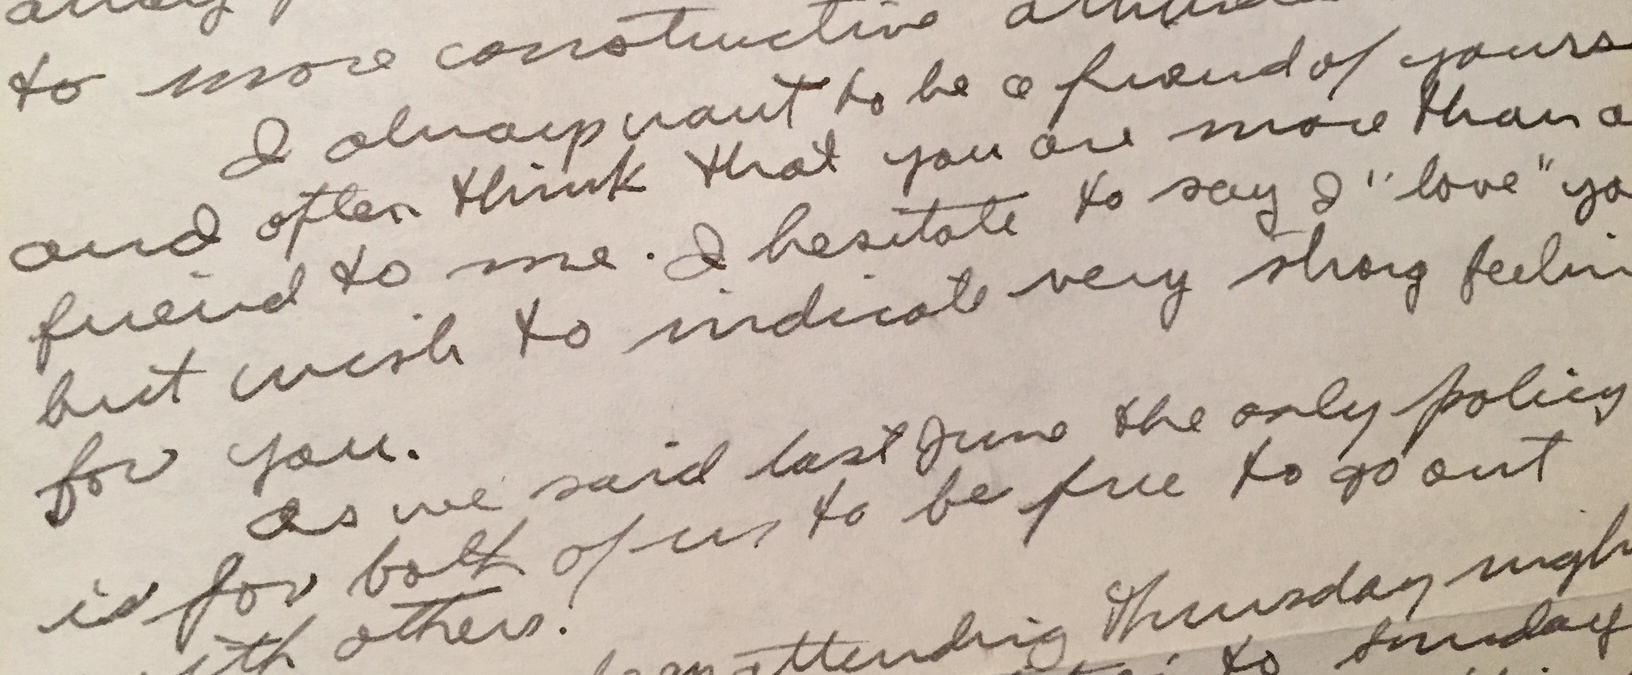 to more constructive
I always want to be a friend of yours
and often think that you are more than a
friend to me. I hesitate to say I "love" yo
but wish to indicate very strong feelin
for you.
As we said last June the only policy
is for both of us to be free to go out
with others.
been attending Thursday nigh
to Sunday